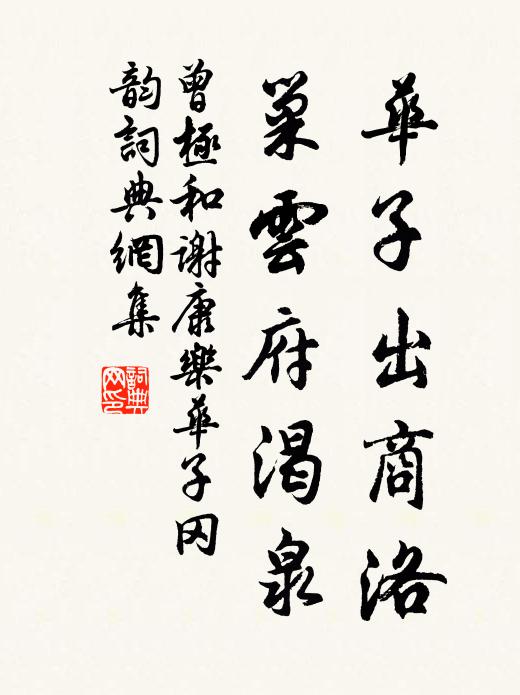 華子出商洛
巢雲府渴泉
曾極和謝康樂華子冈
韵詞典網集
詞典网印